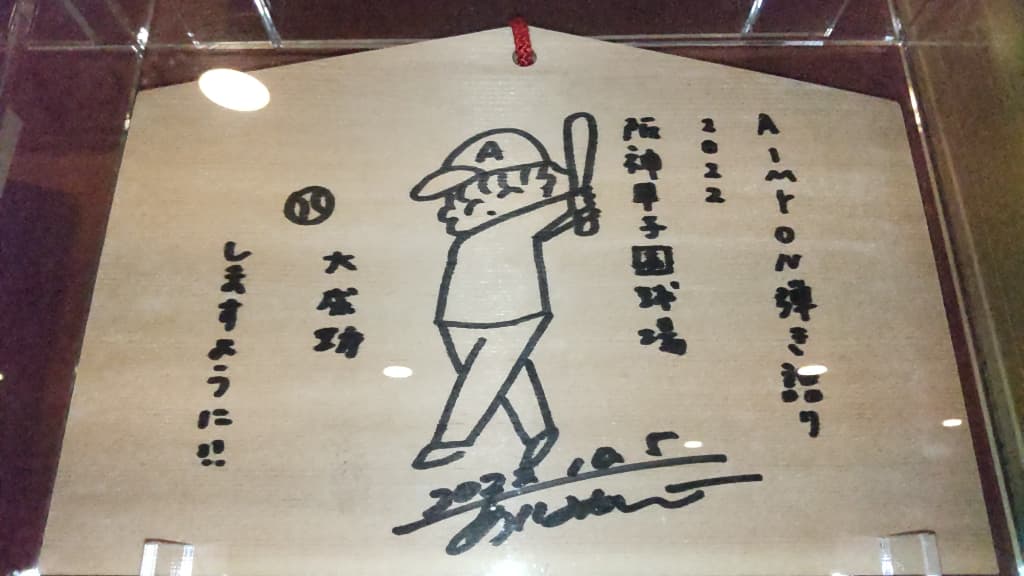 AimYoN弾き語り
2022
阪神甲子園球場
A
大成功
しますように!!
2022.10.5